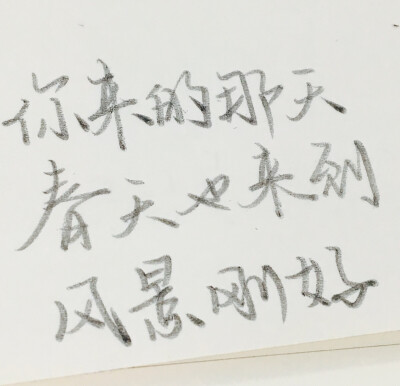 你来的那天
春天也来到
风景刚好